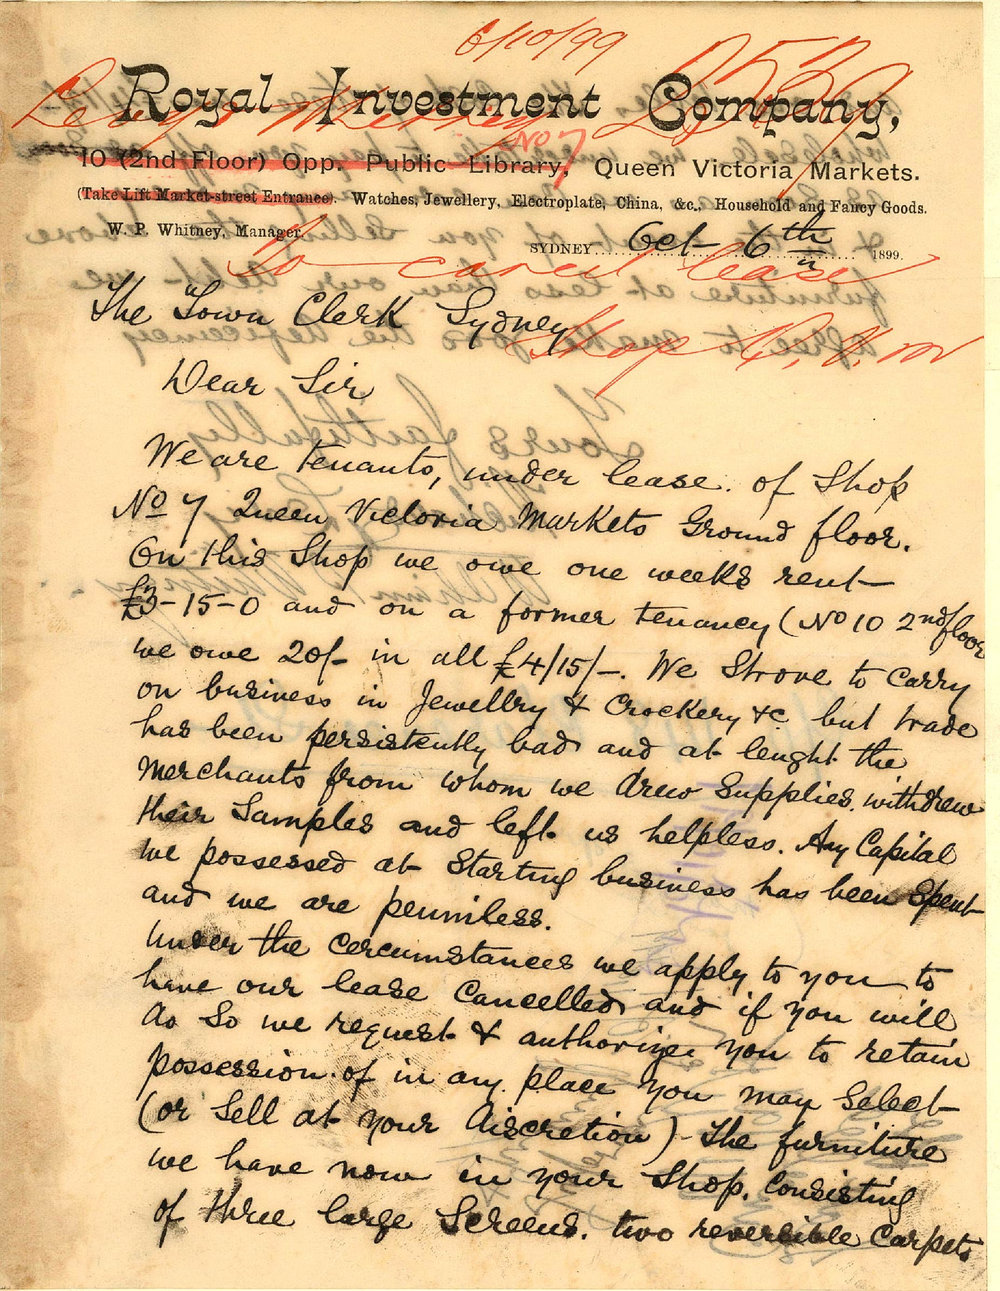 6/10/99
2530
Royal Investment Company,
No 7
10 (2nd Floor) Opp. Public Library, Queen Victoria Markets.
(Take Lift Market-street Entrance). Watches, Jewellery, Electroplate, China, &c., Household and Fancy Goods.
W. P. Whitney, Manager.
SYDNEY Oct 6th 1899
To cancel lease
Shop
The Town Clerk Sydney
Dear Sir
We are tenants, under lease. of Shop
No 7 Queen Victoria Markets Ground floor.
On this Shop we owe one weeks rent
£3-15-0 and on a former tenancy (No 10 2nd floor
we owe 20/- in all £4/15/-. We Strove to carry
on business in Jewellry & Crockery &c but trade
has been persistently bad and at lenght the
Merchants from whom we drew Supplies, withdrew
their Samples and left us helpless. Any Capital
we possessed at Starting business has been Spent
and we are penniless.
Under the Circumstances we apply to you to
have our lease Cancelled and if you will
do So we request & authorize you to retain
possession. of in any place you may Select
(or Sell at your discretion) - the furniture
we have now in your Shop. Consisting
of three large Screens. two reversible Carpets